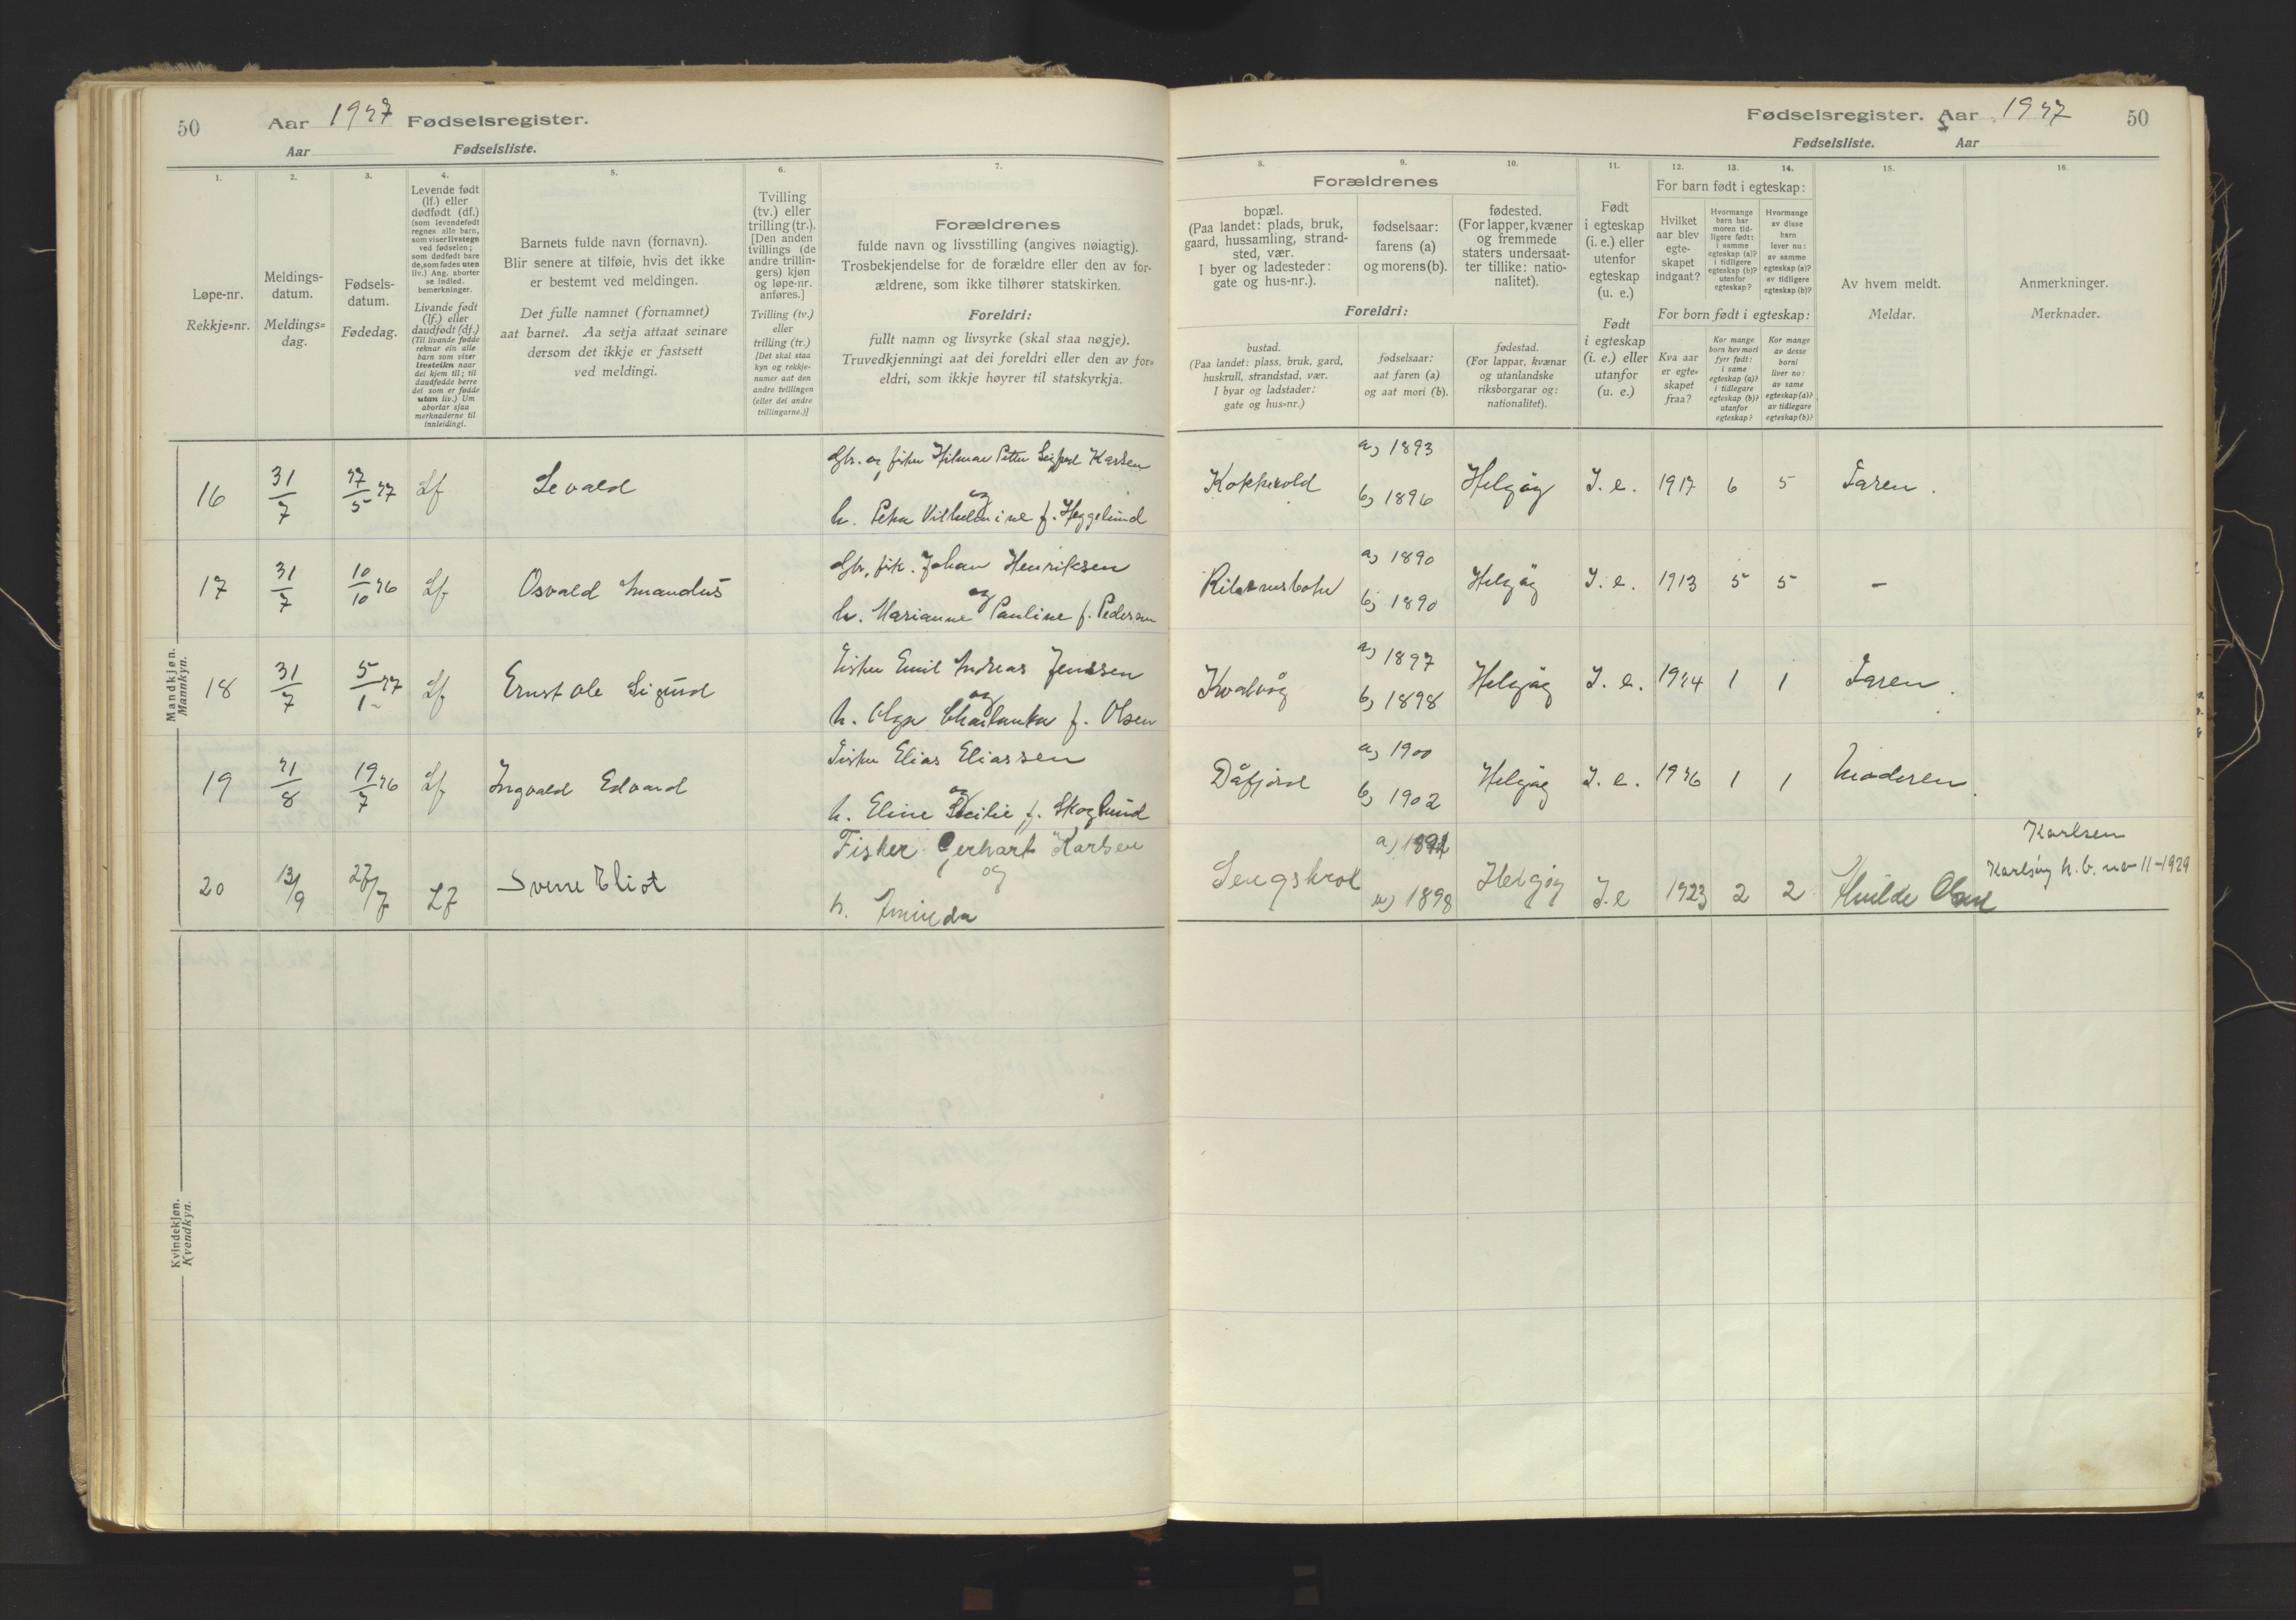 50 Aar 1927 Fødselsregister.
Aar Fødselsliste.
1. 2. 3. 4. 5. 6. 7.
Løpe-nr.
Rekkje=nr.
Meldings-
datum.
Meldings=
dag.
Fødsels-
datum.
Fødedag.
Levende født
(lf.) eller
dødfødt (df.)
(som levendefødt
regnes alle barn,
som viser livstegn
ved fødselen;
som dødfødt bare
de, som fødes uten
liv.) Ang. aborter
se indled.
bemerkninger.
Livande født
(lf.) eller
daudfødt (df.)
(Til livande fødde
reknar ein alle
barn som viser
livsteikn naar
dei kjem til; til
daudfødde berre
dei som er fødde
utan liv.) Um
abortar sjaa
merknaderne til
innleidingi.
Barnets fulde navn (fornavn).
Blir senere at tilføie, hvis det ikke
er bestemt ved meldingen.
Det fulle namnet (fornamnet)
aat barnet. Aa setja attaat seinare
dersom det ikkje er fastsett
ved meldingi.
Tvilling
(tv.) eller
trilling (tr.).
[Den anden
tvillings (de
andre trillin-
gers) kjøn
og løpe-nr.
anføres.]
Tvilling (tv.)
eller
trilling (tr.)
[Det skal staa
kyn og rekkje-
numer aat den
andre tvillingen
(eller dei andre
trillingarne.)]
Forældrenes
fulde navn og livsstilling (angives nøiagtig).
Trosbekjendelse for de forældre eller den av for-
ældrene, som ikke tilhører statskirken.
Foreldri:
fullt namn og livsyrke (skal staa nøgje).
Truvedkjenningi aat dei foreldri eller den av for=
eldri, som ikkje høyrer til statskyrkja.
Mandkjøn.
Mannkyn.
16 31/7 27/5 27 Lf Sevald
Gbr. og fisker Hilmar Petter Karlsen
og
h. Petra Vilhelmine f. Heggelund
17 31/7 10/10 26 Lf Osvald Amandus
Gbr. fisk. Johan Henriksen
og
h. Marianne Pauline f. Pedersen
18 31/7 5/1 27 Lf Ernst Ole Sigurd
Fisker Emil Andreas Jenssen
og
h. Olga f. Olsen
19 21/8 19/7 26 Lf Ingvald Edvard
Fisker Elias Eliassen
og
h. Eline f. Skoglund
20 13/9 27/7 Lf Sverre Eliot
Fisker Gerhart Karlsen
og
h. Aminda
Kvindekjøn.
Kvendkyn.
Fødselsregister. Aar 1927 50
Fødselsliste. Aar
8. 9. 10. 11. 12. 13. 14. 15. 16.
Forældrenes
bopæl.
(Paa landet: plads, bruk,
gaard, hussamling, strand-
sted, vær.
I byer og ladesteder:
gate og hus-nr.).
fødselsaar:
farens (a)
og morens (b).
fødested.
(For lapper, kvæner
og fremmede
staters undersaat-
ter tillike: natio-
nalitet).
Foreldri:
bustad.
(Paa landet: plass, bruk, gard,
huskrull, strandstad, vær.
I byar og ladstader:
gate og hus=nr.)
fødselsaar:
aat faren (a)
og aat mori (b).
fødestad.
(For lappar, kvænar
og utanlandske
riksborgarar og:
nationalitet).
Født
i egteskap
(i. e.) eller
utenfor
egteskap
(u. e.)
Født
i egteskap
(i. e.) eller
utanfor
(u. e.)
For barn født i egteskap:
Hvilket
aar blev
egte-
skapet
indgaat?
Hvormange
barn har
moren tid-
ligere født:
i samme
egteskap (a)?
i tidligere
egteskap (b)?
utenfor
egteskap?
Hvormange
av disse
barn
lever nu:
av samme
egteskap (a)?
av tidligere
egteskap (b)?
For born født i egteskap:
Kva aar
er egte=
skapet
fraa?
Kor mange
born hev mori
fyrr født:
i same
egteskap (a)?
i tidlegare
egteskap (b)?
utanfor
egteskap?
Kor mange
av desse
borni
liver no:
av same
egteskap (a)?
av tidlegare
egteskap (b)?
Av hvem meldt.
Meldar.
Anmerkninger.
Merknader.
a) 1893
Kokkevold Helgøy I. e. 1917 6 5 Faren.
b) 1896
a) 1890
Helgøy I. e. 1913 5 5 –
b) 1890
a) 1897
Kvalvåg Helgøy I. e. 1924 1 1 Faren.
b) 1898
a) 1900
Dåfjord Helgøy I. e. 1926 1 1 Moderen.
b) 1902
a)
Helgøy I. e 1923 2 2 Olsen
1898
Karlsen
Karlsøy k. b. no 11-1929